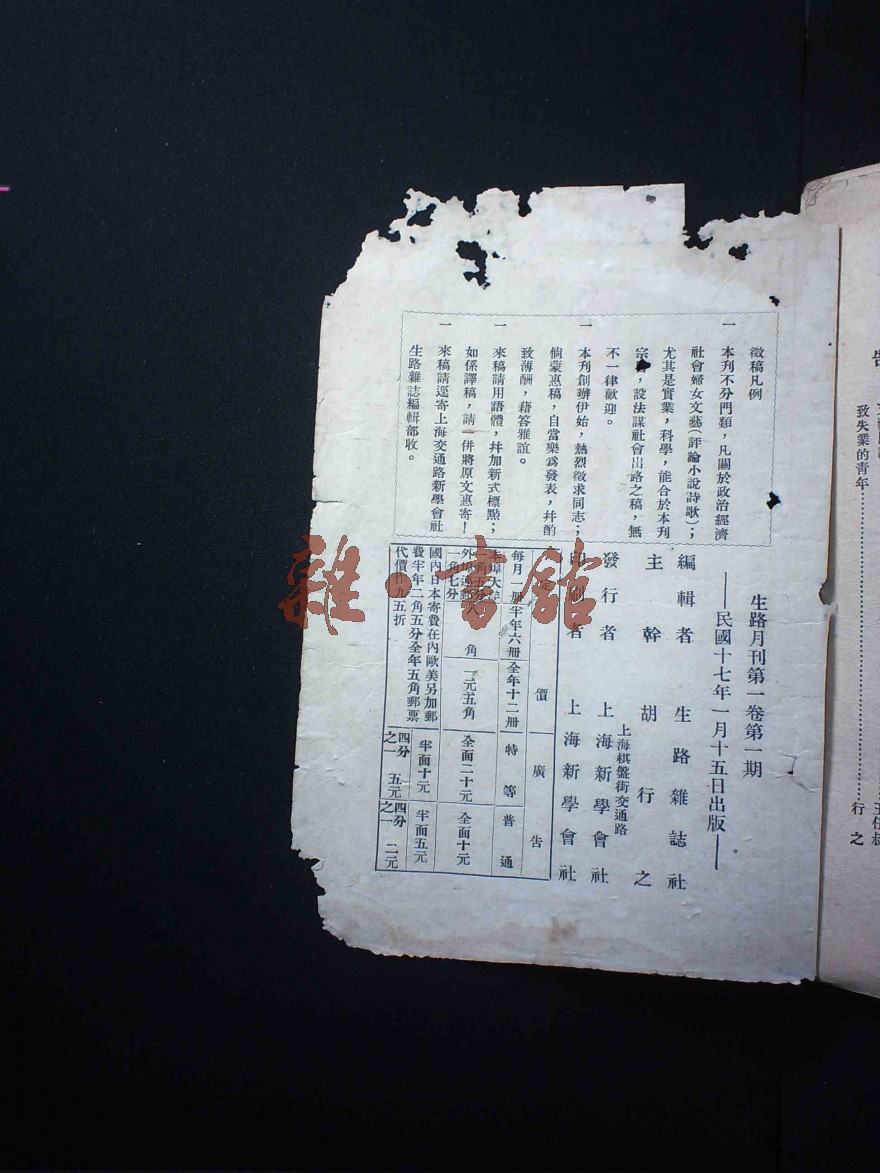 徵稿凡例
一 本刊不分門類，凡關於政治經濟
社會婦女文藝（評論小說詩歌）；
尤其是實業，科學，能合於本刊
宗，設法謀社會出路之稿，無
不一律歡迎。
一 本刊創辦伊始，熱烈徵求同志；
倘蒙惠稿，自當樂爲發表，幷酌
致薄酬，藉答雅誼。
一 來稿請用語體，幷加新式標點；
如係譯稿，請一併將原文惠寄！
一 來稿請逕寄上海交通路新學會社
生路雜誌編輯部收。
生路月刊第一卷第一期
——民國十七年一月十五日出版——
編輯者 生路雜誌社
主幹 胡行之
上海棋盤街交通路
發行者 上海新學會社
印刷者 上海新學會社
價
每月一册
半年六册
全年十二册
本埠大洋
一角五分
外埠
一角七分
八角
一元五角
國內日本寄費在內歐美另加郵
費半年二角五分全年五角郵票
代價作九五折
廣告
特等
普通
全面二十元
全面十元
半面十元
半面五元
四分之一 五元
四分之一 二元
致失業的青年……行之
王任叔
雜·書館